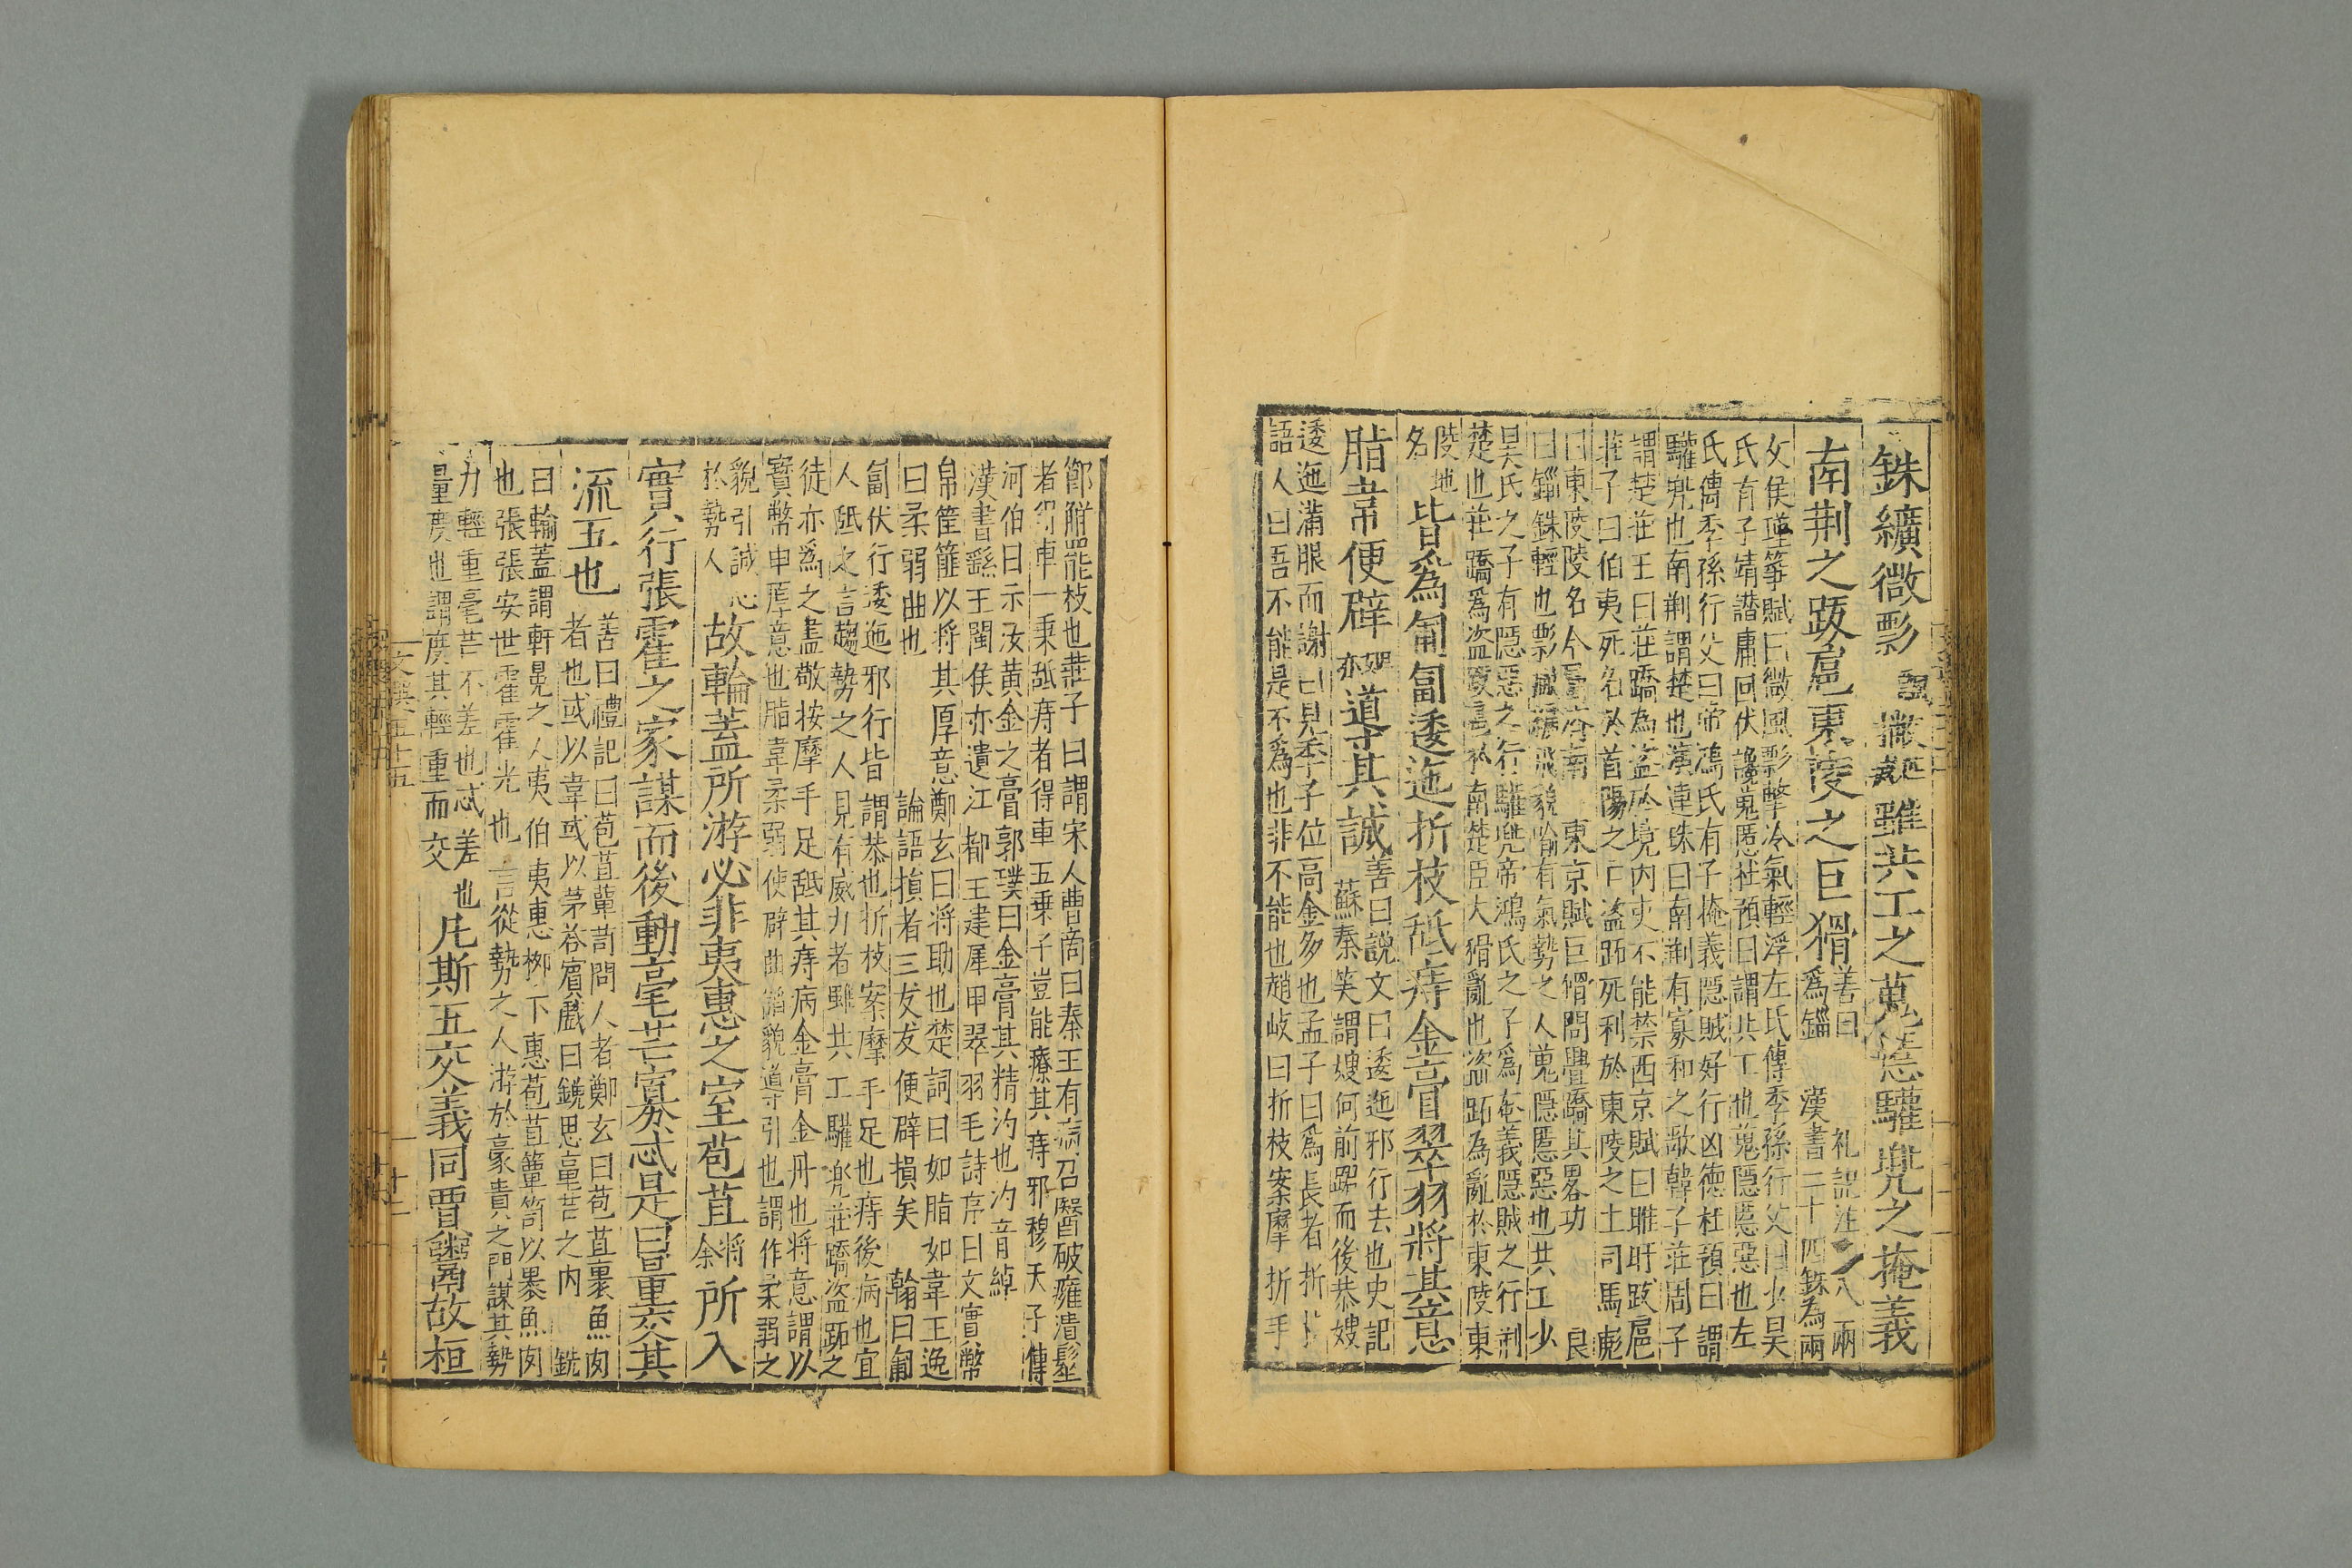 銖纊微影飄撇雖共工之蒐慝驩兜之掩義
南荆之跋扈東陵之巨猾善曰礼記注八兩
爲錙漢書二十四銖為兩
文侯瑾箏賦曰微風影擎冷氣輕浮左氏傳季孫行父曰少昊
氏有子靖譖庸回伏讒蒐慝杜預曰謂共工也蒐隱慝惡也左
氏傳季孫行父曰帝鴻氏有子掩義隱賊好行凶德杜預曰謂
驩兜也南荆謂楚也演連珠曰南荆有寡和之歌韓子莊周子
謂楚莊王曰莊蹻為盜於境内吏不能禁西京賦曰睢盱跋扈
莊子曰伯夷死名於首陽之下盜跖死利於東陵之上司馬彪
曰東陵陵名今屬濟南東京賦巨猾問舋蹻其畧功良
曰錙銖輕也影飛貌喻有氣勢之人蒐隱慝惡也共工少
昊氏之子有隱惡之行驩兜帝鴻氏之子爲奄義隱賊之行荆
楚也莊蹻爲盜南楚臣大猾亂也盜跖為亂於東陵東
陵地
名皆爲匍匐逶迤折枝舐痔金膏翠羽將其意
脂韋便辟導其誠善曰説文曰逶迤邪行去也史記
蘇秦笑謂嫂何前踞而後恭嫂
逶迤滿服而謝曰見季子位高金多也孟子曰爲長者折
語人曰吾不能是不爲也非不能也趙岐曰折枝案摩折手
節解罷枝也莊子曰謂宋人曹商曰秦王有病召醫破癰潰髽
者得車一乗舐痔者得車五乗子豈能療其痔邪穆天子傳
河伯曰示汝黄金之膏郭璞曰金膏其精汋也汋音綽
漢書繇王閩侯亦遺江都王建犀甲翠羽毛詩序曰文實幣
帛筐篚以將其厚意鄭玄曰将助也楚詞曰如脂如韋王逸
曰柔弱曲也論語損者三友友便辟損矣翰曰匍
匐伏行逶迤邪行皆謂恭也折枝案摩手足也痔後病也宜
人舐之言趨勢之人見有威力者雖共工驩兜莊蹻盜跖之
徒亦爲之盡敬按摩手足舐其痔病金膏金丹也將意謂以
寶幣申厚意也脂韋柔弱使辟曲謟貌導引也謂作柔弱之
貌引誠心
於勢人故輪蓋所游必非夷惠之室苞苴將余所入
實行張霍之家謀而後動毫芒寡忒是曰量交其
流五也善曰禮記曰苞苴簞笥問人者鄭玄曰苞苴裹魚肉
者也或以葦或以茅荅賓戲曰銳思毫芒之内銑
曰輪蓋謂軒晃之人夷伯夷惠柳下惠苞苴簞笥以裹魚肉
也張張安世霍霍光也言從勢之人游於豪貴之門謀其勢
力輕重毫芒不差也忒差也
量度也謂度其輕重而交凡斯五交義同賈鬻故桓
文選五十五
十二